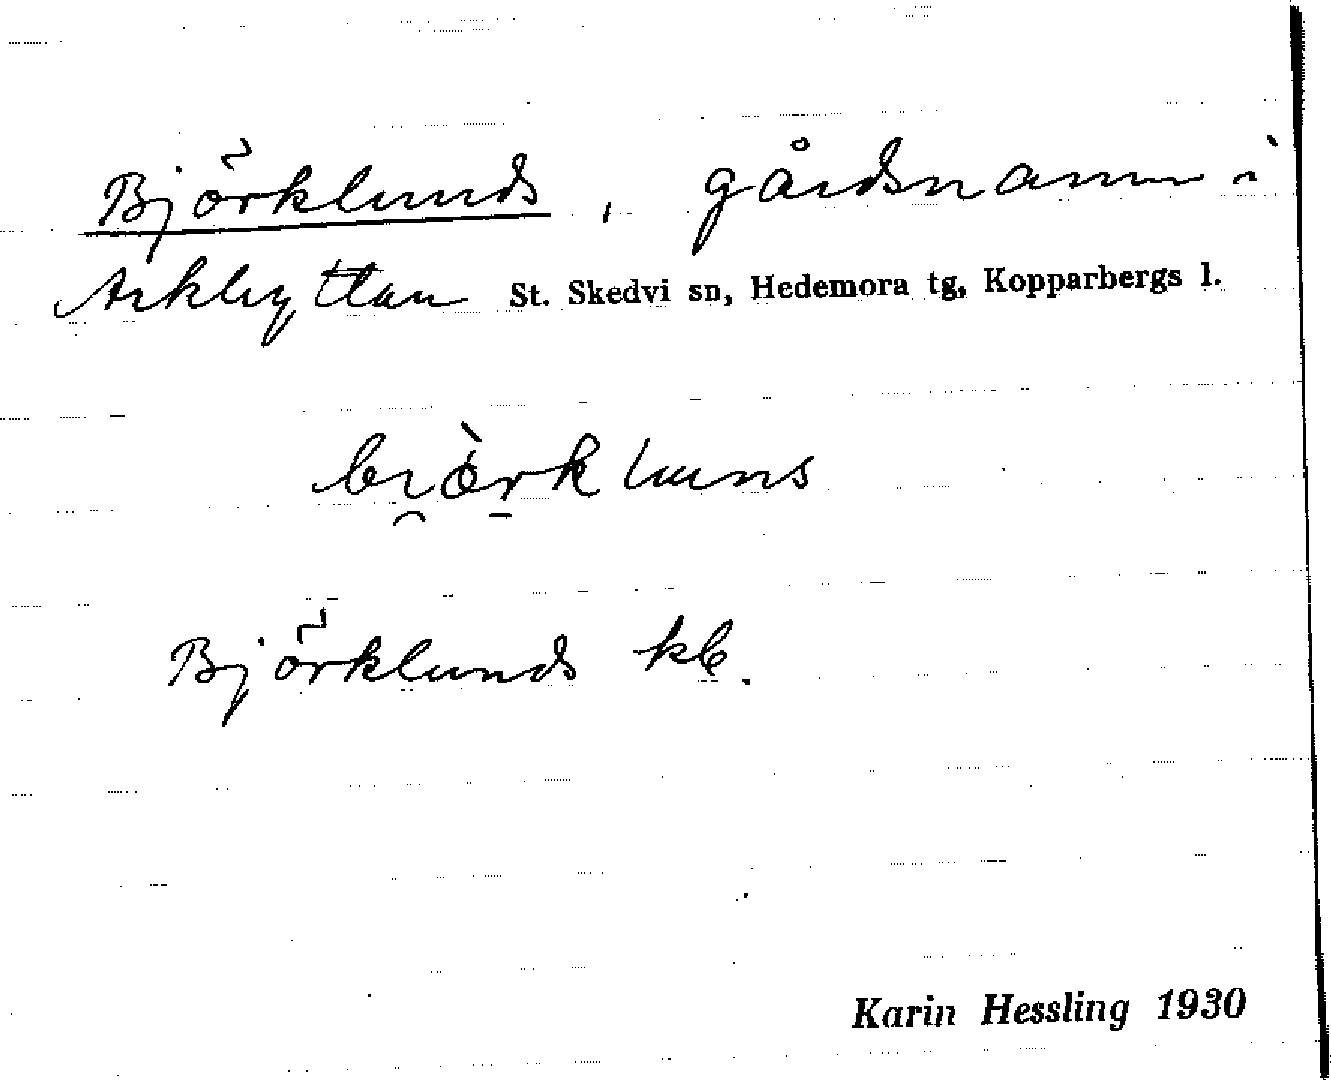 Björklunds, gårdsnamn i
Arkhyttan St. Skedvi sn, Hedemora tg, Kopparbergs l.
Björklunds kb.
Karin Hessling 1930